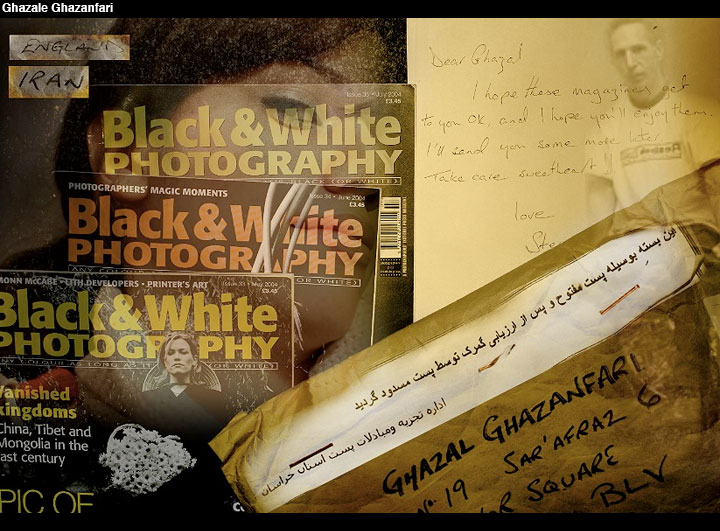 Ghazale Ghazanfari
ENGLAND
IRAN
Issue 35 • July 2004
£3.45
Black & White
PHOTOGRAPHY
BLACK (OR WHITE)
PHOTOGRAPHERS' MAGIC MOMENTS
Issue 34 • June 2004
£3.45
Black & White
PHOTOGRAPHY
(OR WHITE)
MONN McCABE • LITH DEVELOPERS • PRINTER'S ART
Issue 33 • May 2004
£3.45
Black & White
PHOTOGRAPHY
MY COLOUR AS LONG AS (OR WHITE)
Vanished
kingdoms
China, Tibet and
Mongolia in the
last century
EPIC OF
Dear Ghazal
I hope these magazines get
to you OK and I hope you'll enjoy them.
I'll send you some more later.
Take care sweetheart !!
love
Ste
این بسته بوسیله پست مفتوح و پس از ارزیابی گمرک توسط پست مسدود گردید
اداره تجزیه ومبادلات پست استان خراسان
GHAZAL GHAZANFARI
No. 19 SAR'AFRAZ 6
SQUARE
BLV